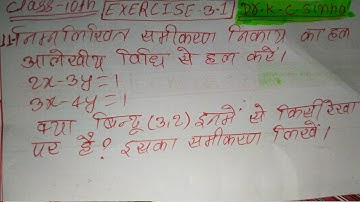 Class-10th EXERCISE-3.1 Dr. K.C. Sinha
निम्नलिखित समीकरण निकाय का हल
आलेखीय विधि से हल करें।
2x-3y=1
3x-4y=1
क्या बिन्दू (3,2) इनमें से किसी रेखा
पर है? इसका समीकरण लिखें।